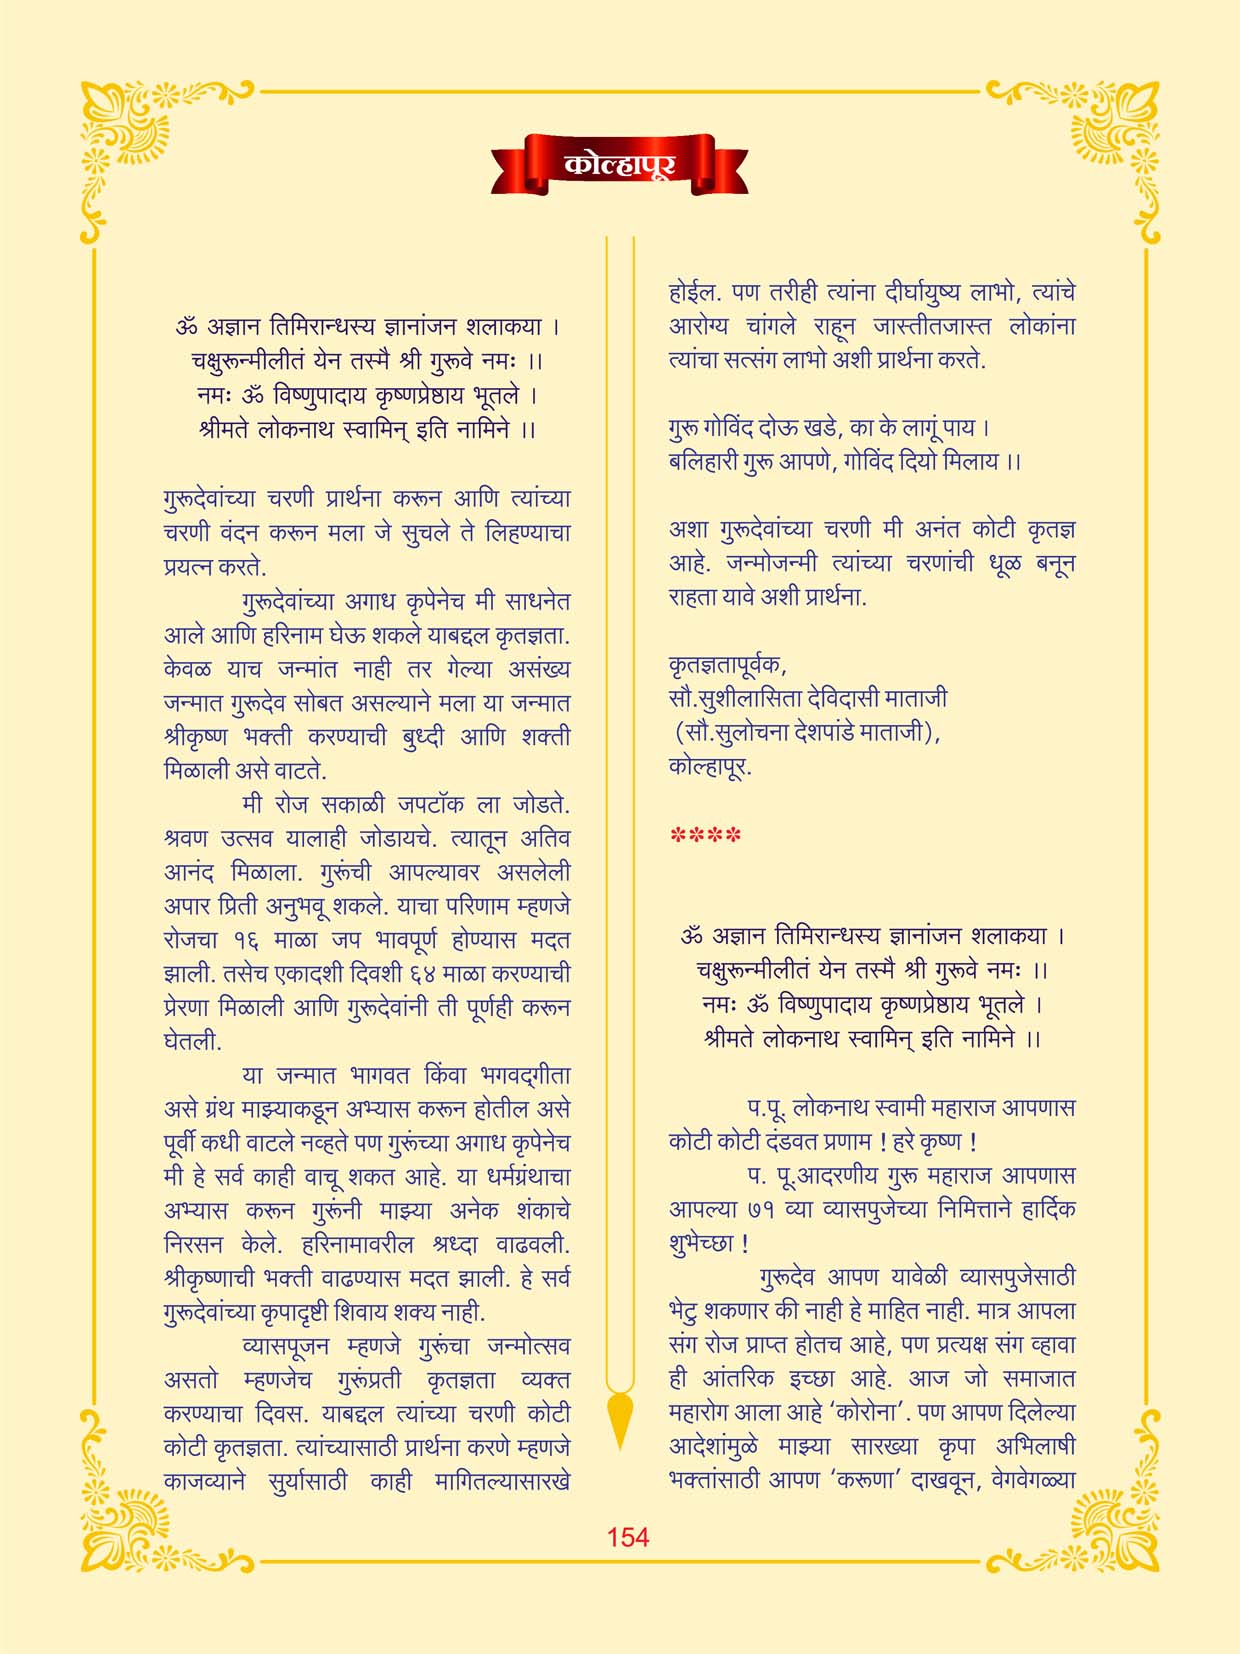 कोल्हापूर
ॐ अज्ञान तिमिरान्धस्य ज्ञानांजन शलाकया ।
चक्षुरून्मीलीतं येन तस्मै श्री गुरूवे नमः ।।
नमः ॐ विष्णुपादाय कृष्णप्रेष्ठाय भूतले ।
श्रीमते लोकनाथ स्वामिन् इति नामिने ।।
गुरूदेवांच्या चरणी प्रार्थना करून आणि त्यांच्या
चरणी वंदन करून मला जे सुचले ते लिहण्याचा
प्रयत्न करते.
गुरूदेवांच्या अगाध कृपेनेच मी साधनेत
आले आणि हरिनाम घेऊ शकले याबद्दल कृतज्ञता.
केवळ याच जन्मांत नाही तर गेल्या असंख्य
जन्मात गुरूदेव सोबत असल्याने मला या जन्मात
श्रीकृष्ण भक्ती करण्याची बुध्दी आणि शक्ती
मिळाली असे वाटते.
मी रोज सकाळी जपटॉक ला जोडते.
श्रवण उत्सव यालाही जोडायचे. त्यातून अतिव
आनंद मिळाला. गुरूंची आपल्यावर असलेली
अपार प्रिती अनुभवू शकले. याचा परिणाम म्हणजे
रोजचा १६ माळा जप भावपूर्ण होण्यास मदत
झाली. तसेच एकादशी दिवशी ६४ माळा करण्याची
प्रेरणा मिळाली आणि गुरूदेवांनी ती पूर्णही करून
घेतली.
या जन्मात भागवत किंवा भगवद्‌गीता
असे ग्रंथ माझ्याकडून अभ्यास करून होतील असे
पूर्वी कधी वाटले नव्हते पण गुरूंच्या अगाध कृपेनेच
मी हे सर्व काही वाचू शकत आहे. या धर्मग्रंथाचा
अभ्यास करून गुरूंनी माझ्या अनेक शंकाचे
निरसन केले. हरिनामावरील श्रध्दा वाढवली.
श्रीकृष्णाची भक्ती वाढण्यास मदत झाली. हे सर्व
गुरूदेवांच्या कृपादृष्टी शिवाय शक्य नाही.
व्यासपूजन म्हणजे गुरूंचा जन्मोत्सव
असतो म्हणजेच गुरूंप्रती कृतज्ञता व्यक्त
करण्याचा दिवस. याबद्दल त्यांच्या चरणी कोटी
कोटी कृतज्ञता. त्यांच्यासाठी प्रार्थना करणे म्हणजे
काजव्याने सुर्यासाठी काही मागितल्यासारखे
होईल. पण तरीही त्यांना दीर्घायुष्य लाभो, त्यांचे
आरोग्य चांगले राहून जास्तीतजास्त लोकांना
त्यांचा सत्संग लाभो अशी प्रार्थना करते.
गुरू गोविंद दोऊ खडे, का के लागूं पाय ।
बलिहारी गुरू आपणे, गोविंद दियो मिलाय ।।
अशा गुरूदेवांच्या चरणी मी अनंत कोटी कृतज्ञ
आहे. जन्मोजन्मी त्यांच्या चरणांची धूळ बनून
राहता यावे अशी प्रार्थना.
कृतज्ञतापूर्वक,
सौ.सुशीलासिता देविदासी माताजी
(सौ.सुलोचना देशपांडे माताजी),
कोल्हापूर.
****
ॐ अज्ञान तिमिरान्धस्य ज्ञानांजन शलाकया ।
चक्षुरून्मीलीतं येन तस्मै श्री गुरूवे नमः ।।
नमः ॐ विष्णुपादाय कृष्णप्रेष्ठाय भूतले ।
श्रीमते लोकनाथ स्वामिन् इति नामिने ।।
प.पू. लोकनाथ स्वामी महाराज आपणास
कोटी कोटी दंडवत प्रणाम ! हरे कृष्ण !
प. पू.आदरणीय गुरू महाराज आपणास
आपल्या ७१ व्या व्यासपुजेच्या निमित्ताने हार्दिक
शुभेच्छा !
गुरूदेव आपण यावेळी व्यासपुजेसाठी
भेटु शकणार की नाही हे माहित नाही. मात्र आपला
संग रोज प्राप्त होतच आहे, पण प्रत्यक्ष संग व्हावा
ही आंतरिक इच्छा आहे. आज जो समाजात
महारोग आला आहे ‘कोरोना’. पण आपण दिलेल्या
आदेशांमुळे माझ्या सारख्या कृपा अभिलाषी
भक्तांसाठी आपण ‘करूणा’ दाखवून, वेगवेगळ्या
154